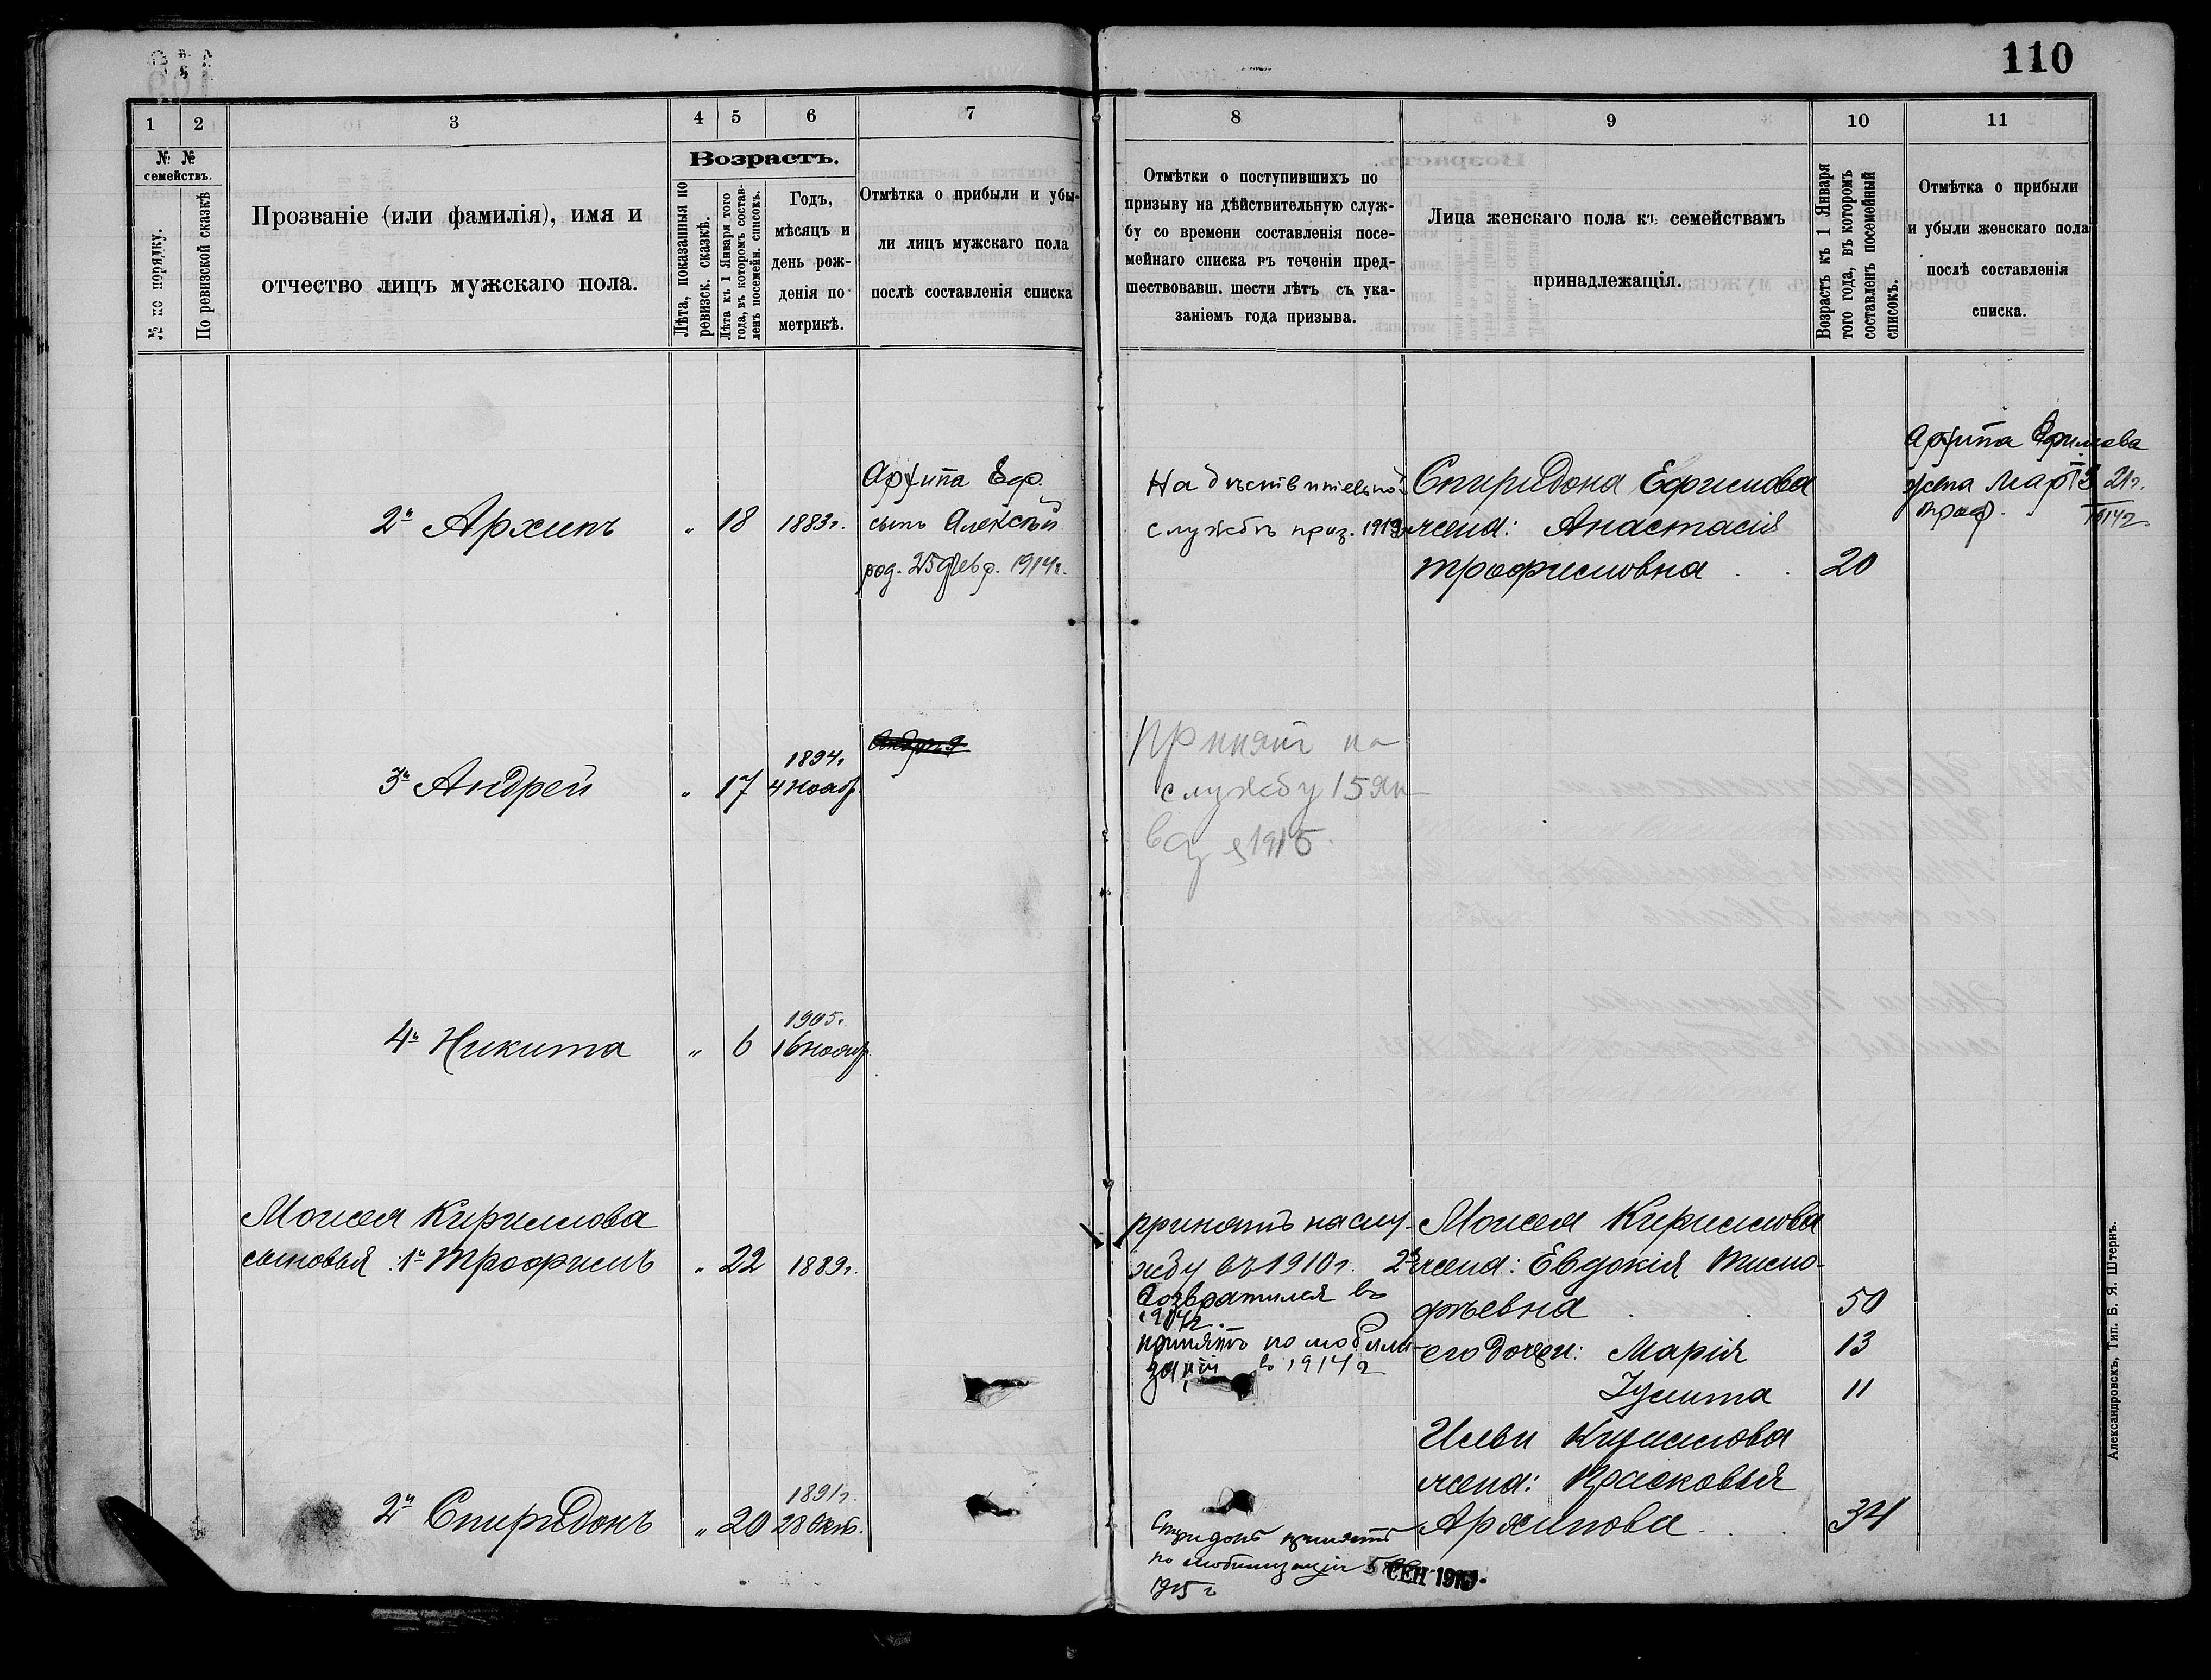 110
1
2
3
4
5
6
7
8
9
10
11
№ №
семействъ.
№ по порядку.
По ревизской сказкѣ
Прозваніе (или фамилія), имя и
отчество лицъ мужскаго пола.
Возрастъ.
Лѣта, показанныя по
ревизск. сказкѣ.
Лѣта къ 1 Января того
года, въ которомъ состав-
ленъ посемейн. списокъ.
Годъ,
мѣсяцъ и
день рож-
денія по
метрикѣ.
Отмѣтка о прибыли и убы-
ли лицъ мужскаго пола
послѣ составленія списка
Отмѣтки о поступившихъ по
призыву на дѣйствительную служ-
бу со времени составленія посе-
мейнаго списка въ теченіи пред-
шествовавш. шести лѣтъ съ ука-
заніемъ года призыва.
Лица женскаго пола къ семействамъ
принадлежащія.
Возрастъ къ 1 Января
того года, въ которомъ
составленъ посемейный
списокъ.
Отмѣтка о прибыли
и убыли женскаго пола
послѣ составленія
списка.
2й Архипъ " 18 1883г.
Архипа Еф.
сынъ Алексѣй
род. 25 февр. 1914г.
На дѣствительной
службѣ приз.
Спиридона Ефимова
жена: Анастасія
Трофимовна . . 20
Архипа Ефимова
жена Мар
1914г.
3й Андрей " 17
1894г.
4 Нояб.
Андрея
Принят на
службу 15 Ян
1915.
4й Никита " 6
1905г.
16 Нояб.
Моисея Кирилова
сыновья: 1й Трофимъ " 22 1889г.
принятъ на слу-
жбу въ 1910г.
возвратился въ
принятъ по мобили
заціи в 1914 г
Моисея Кирилова
2я жена: Евдокія Тимо-
фѣевна . . 50
его дочери: Марія 13
Іулита 11
Ильи Кирилова
жена: Прасковья
Архипова . . . 34
2й Спиридонъ " 20
1891г.
28 Окт.
Спиридонъ принятъ
по мобилизаціи 5 СЕН
1915 г
Александровскъ, Тип. Б. Я. Штернъ.